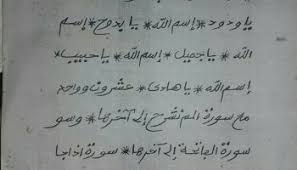 يا ودود * إسم الله * يا بدوح * إسم
الله * يا جميل * إسم الله * يا حبيب *
إسم الله * يا هادى * عشرون وواحد
مع سورة الم نشرح إلى آخرها * وسو
سورة الفاتحة إلى آخرها * سورة اذا جا